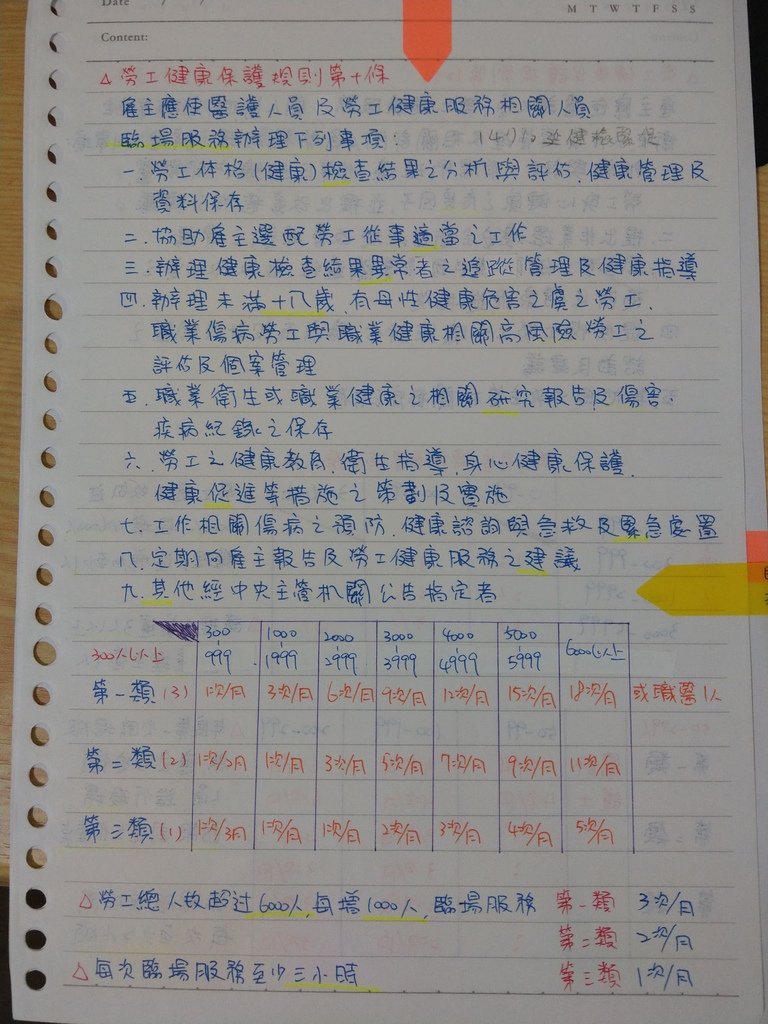 Date / /
M T W T F S S
Content:
△ 勞工健康保護規則第十條
雇主應使醫護人員及勞工健康服務相關人員
臨場服務辦理下列事項.
一.勞工体格(健康)檢查結果之分析與評估.健康管理及
資料保存
二.協助雇主選配勞工從事適當之工作
三.辦理健康檢查結果異常者之追蹤管理及健康指導
四.辦理未滿十八歲.有母性健康危害之虞之勞工.
職業傷病勞工與職業健康相關高風險勞工之
評估及個案管理
五.職業衛生或職業健康之相關研究報告及傷害.
疾病紀錄之保存
六.勞工之健康教育.衛生指導.身心健康保護.
健康促進等措施之策劃及實施
七.工作相關傷病之預防.健康諮詢與急救及緊急處置
八.定期向雇主報告及勞工健康服務之建議
九.其他經中央主管机關公告指定者
300人以上 300-999 1000-1999 2000-2999 3000-3999 4000-4999 5000-5999 6000以上
第一類(3) 1次/月 3次/月 6次/月 9次/月 12次/月 15次/月 18次/月 或職醫1人
第二類(2) 1次/2月 1次/月 3次/月 5次/月 7次/月 9次/月 11次/月
第三類(1) 1次/3月 1次/月 1次/月 2次/月 3次/月 4次/月 5次/月
△勞工總人故超过6000人,每增1000人,臨場服務 第一類 3次/月
第二類 2次/月
△每次臨場服務至少三小時 第三類 1次/月